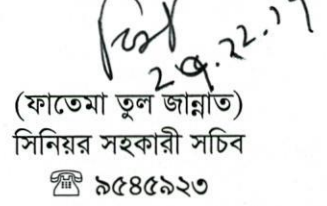 (ফাতেমা তুল জান্নাত)
সিনিয়র সহকারী সচিব
☏ ৯৫৪৫৯২৩